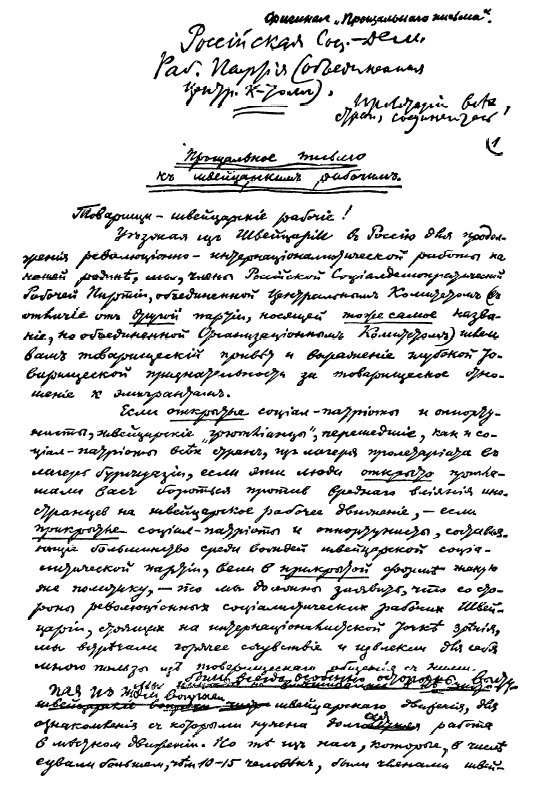 Оригинал „Прощальнаго письма“.
Россійская Соц.-Дем.
Раб. Партія (объединенная
Центр. К-томъ).
Пролетаріи всѣхъ
стран, соединяйтесь!
1
Прощальное письмо
къ швейцарскимъ рабочимъ.
Товарищи - швейцарскіе рабочіе!
Уѣзжая изъ Швейцаріи въ Россію для продол-
женія революціонно - интернаціоналистической работы на
нашей родинѣ, мы, члены Россійской Соціалдемократической
Рабочей Партіи, объединенной Центральнымъ Комитетомъ (въ
отличіе отъ другой партіи, носящей то же самое назва-
ніе, но объединенной Организаціоннымъ Комитетомъ) шлем
вамъ товарищескій привѣт и выраженіе глубокой то-
варищеской признательности за товарищеское отно-
шеніе к эмигрантам.
Если открытые соціал-патріоты и оппорту-
нисты, швейцарскіе „грютліанцы“, перешедшіе, как и со-
ціал-патріоты всѣх стран, из лагеря пролетаріата въ
лагерь буржуазіи, если эти люди открыто пригла-
шали васъ бороться против вреднаго вліянія ино-
странцев на швейцарское рабочее движеніе, - если
прикрытые соціал-патріоты и оппортунисты, составля-
ющіе большинство среди вождей швейцарской соціа-
листической партіи, вели в прикрытой формѣ такую
же политику, - то мы должны заявить, что со сто-
роны революціонных соціалистических рабочих Швей-
царіи, стоящих на интернаціоналистской точкѣ зрѣнія,
мы встрѣчали горячее сочувствіе и извлекли для себя
много пользы изъ товарищескаго общенія с ними.
Мы были всегда особенно осторожны, высту-
пая
швейцарскаго движенія, для
ознакомленія с которыми нужна долгая работа
в мѣстном движеніи. Но тѣ из нас, которые, в числѣ
едва ли большем, чѣм 10-15 человѣк, были членами швей-